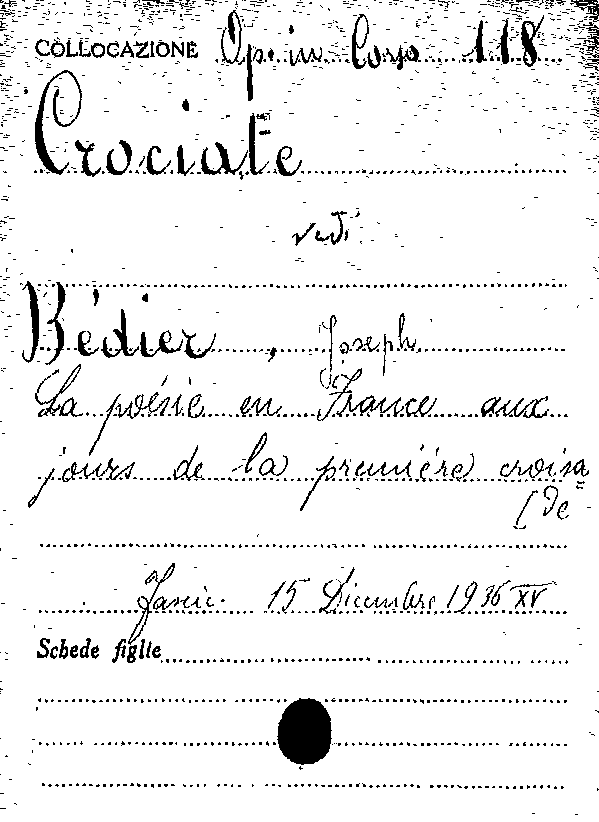 COLLOCAZIONE Op. in Corso 118
Crociate
vedi
Bédier, Joseph
La poésie en France aux
jours de la première croisa=
[de
Fascic. 15 Dicembre 1936 XV
Schede figlie